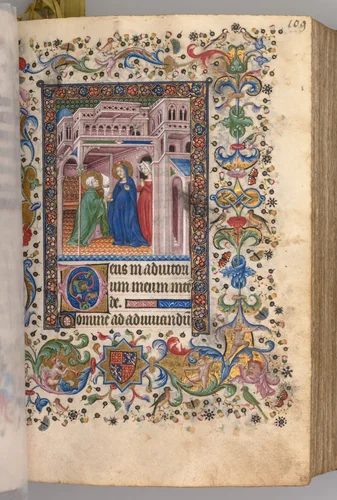 109
Deus in adiutori
um meum inte
de.
Domine ad adiuuandu